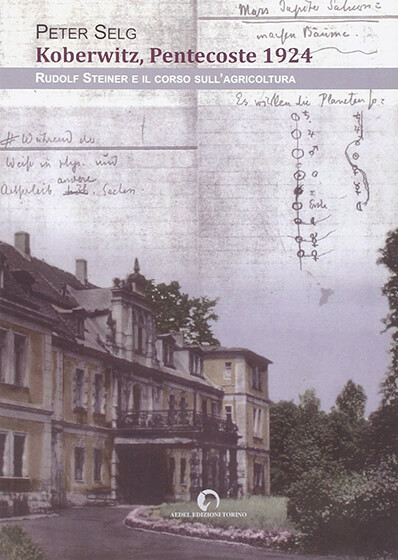 Mars Jupiter Saturn =
machen Bäume.
PETER SELG
Koberwitz, Pentecoste 1924
RUDOLF STEINER E IL CORSO SULL'AGRICOLTURA
Es wirken die Planeten so:
# Während
Weiß in und
andere
Erde
AEDEL EDIZIONI TORINO